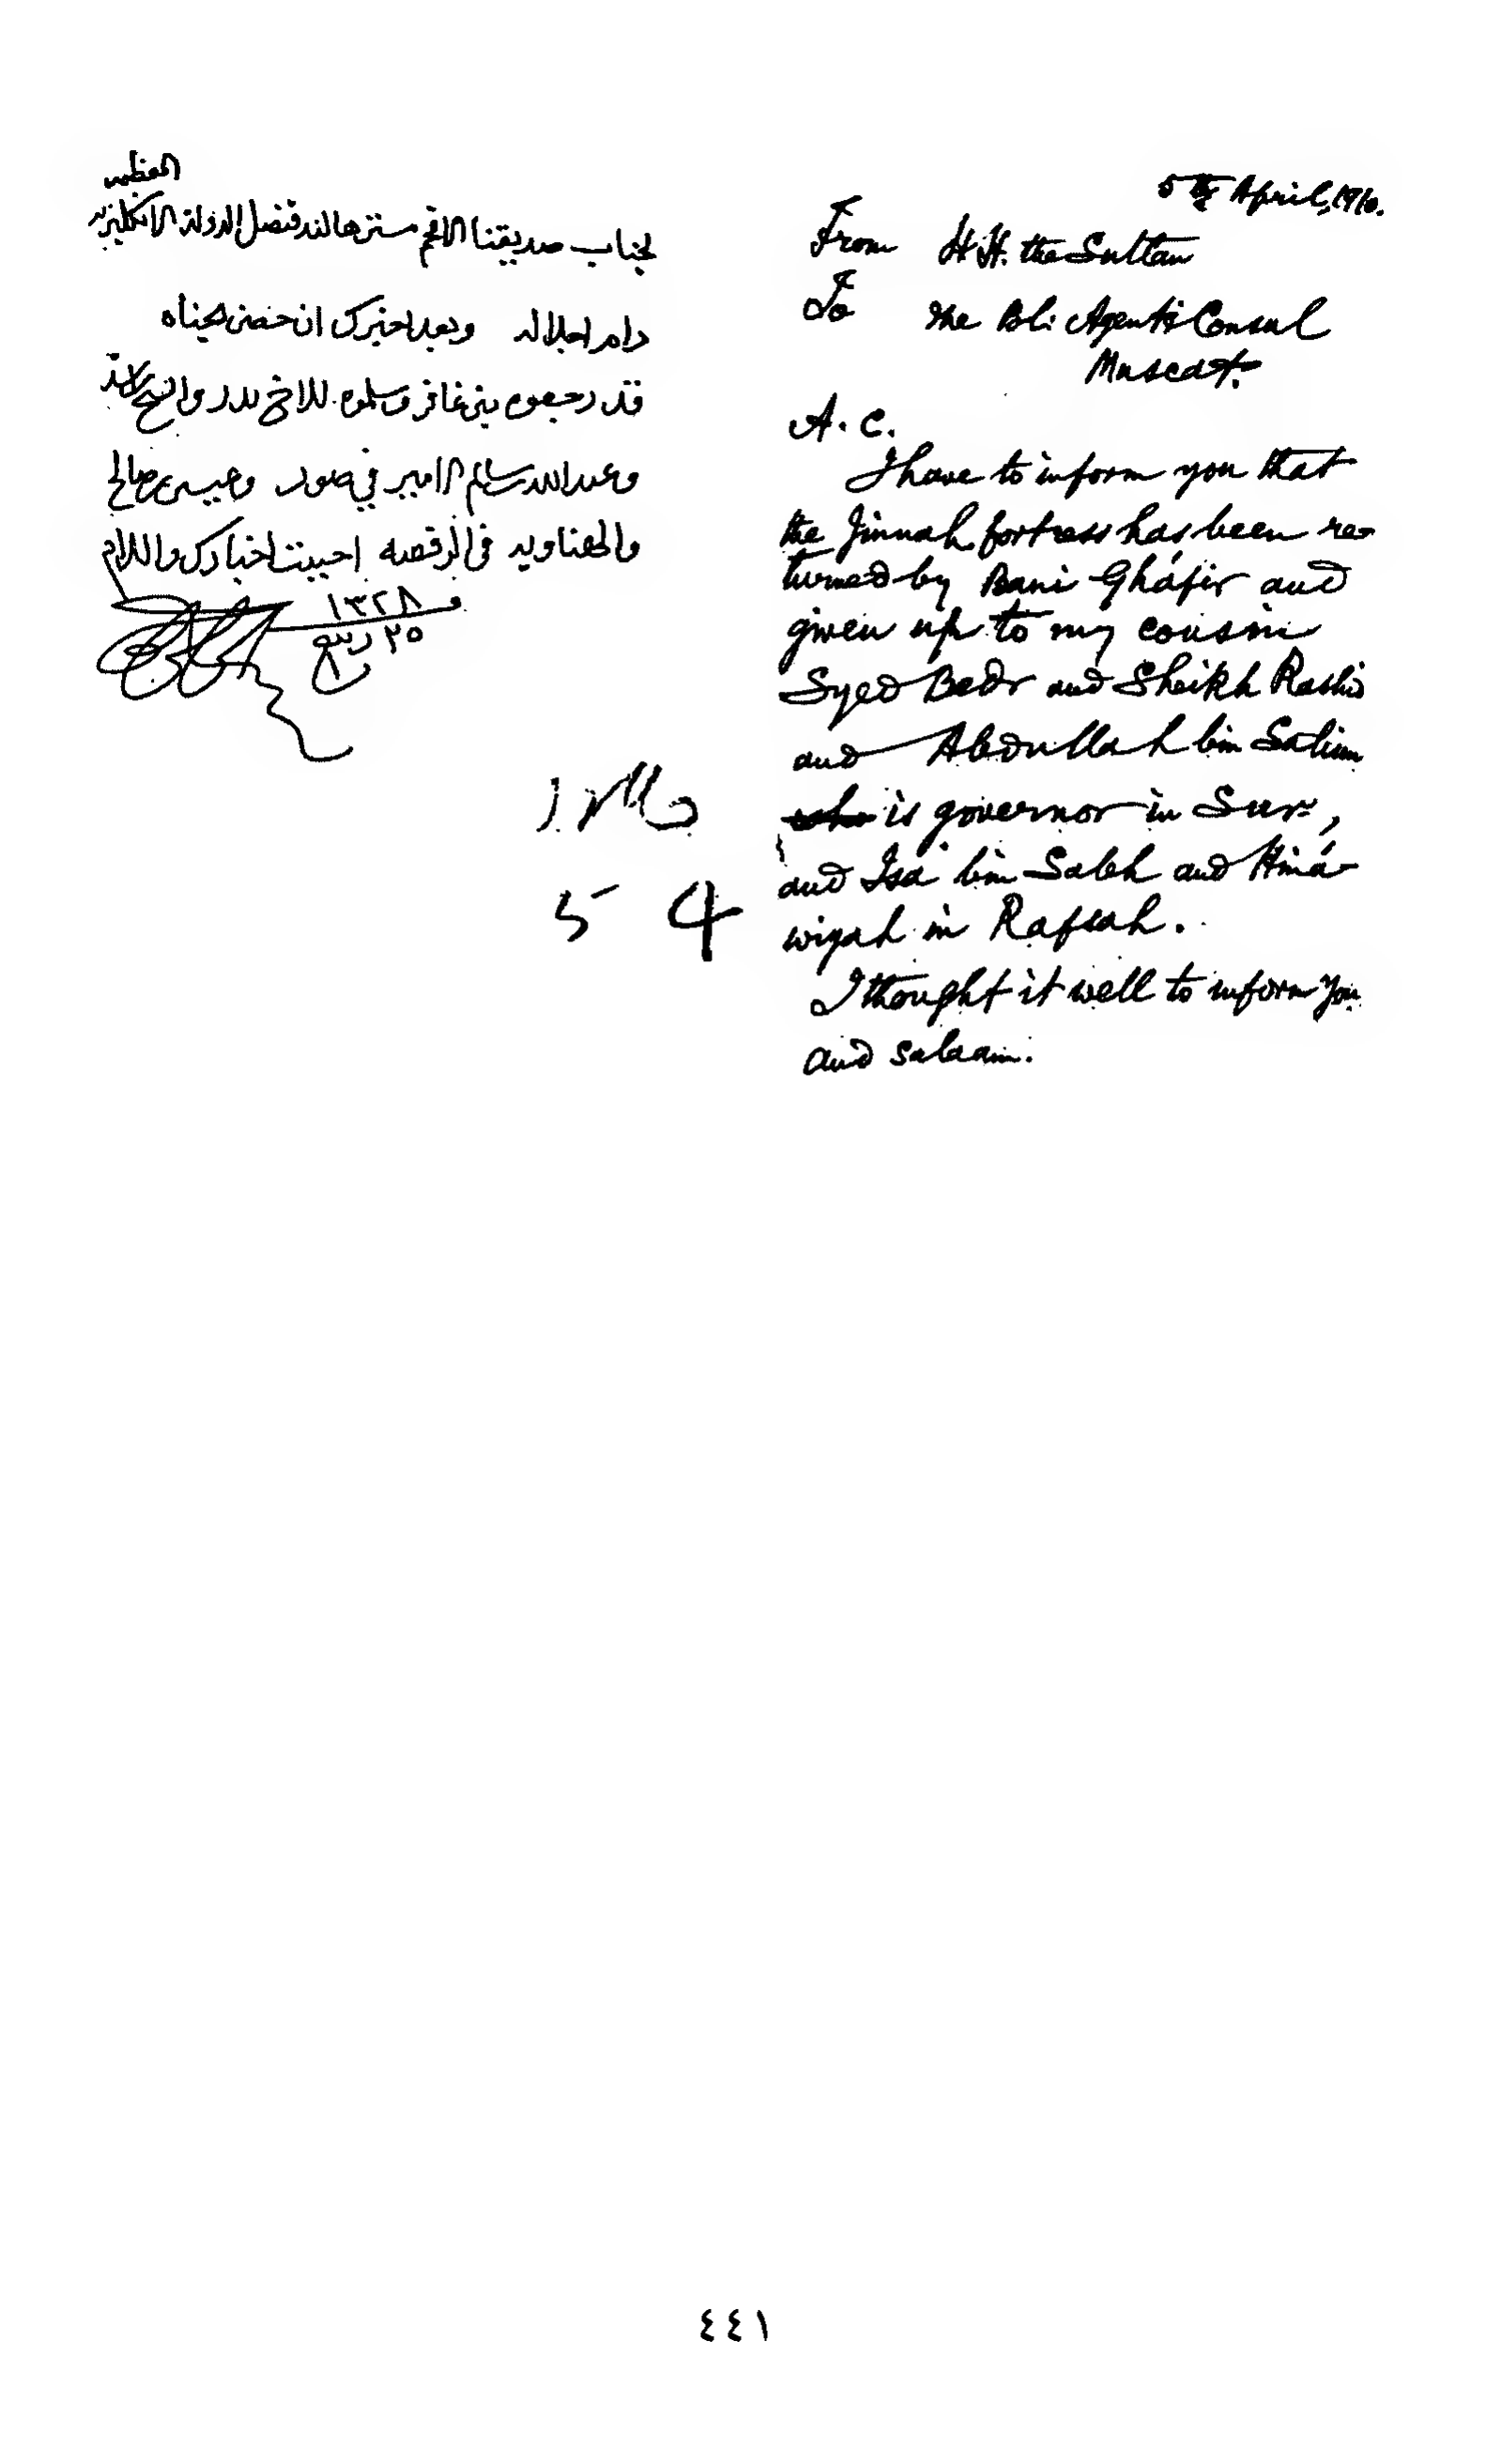 العظمى
لجناب صديقنا الافخم مستر هالند قنصل الدولة الانكليزيه
دام اجلاله وبعد اخبرك ان حصن الجناه
قد رجعوه بني غافر وسلموه للاخ بدر والشيخ راشد
وعبدالله بن سالم الامير في صور وعيسى بن صالح
والهناويه في الرفصه احببت اخبارك والسلام
١٣٢٨
٢٥ ربيع
5th April, 1910.
From H.H. the Sultan
To the Pol: Agent & Consul
Muscat.
A. C.
I have to inform you that
the Jinnah fortress has been re-
turned by Bani Gháfir and
given up to my cousin
Syed Bedr and Sheikh Rashid
and Abdullah bin Salim
who is governor in Sur,
and Isá bin Saleh and Hiná-
wiyah in Rafsah.
I thought it well to inform you
and salaam.
5 4
٤٤١